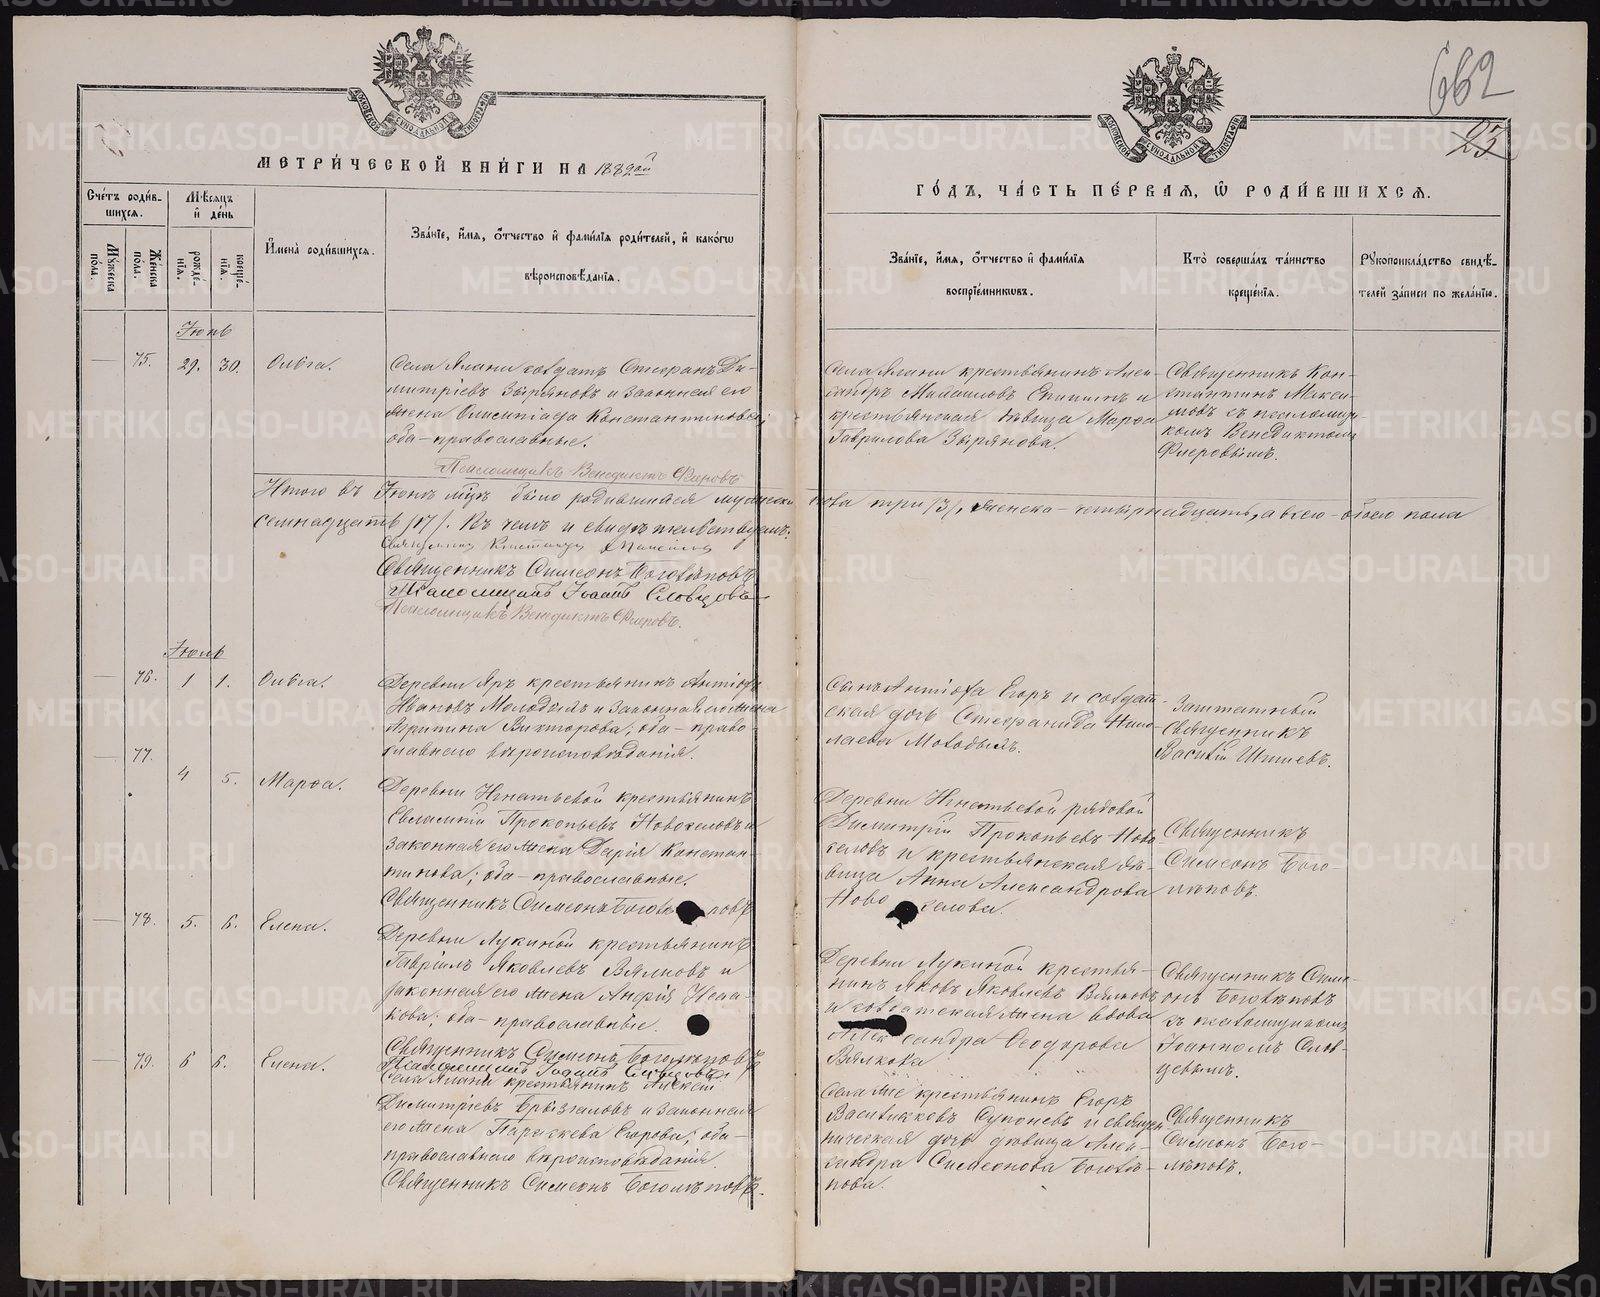 662
23
МОСКОВСКОЙ СѴНОДАЛЬНОЙ ТИПОГРАФІИ
МЕТРИ́ЧЕСКОЙ КНИ́ГИ НА 1882ой
Сче́тъ роди́в-
шихся.
Мѣсяцъ
и̂ де́нь
Мꙋ́жеска
по́ла.
Же́нска
по́ла.
рожде́-
нїя.
креще́-
нїя.
И̂мена̀ роди́вшихся.
Зва́нїе, и̂́мя, ѻ̂́тчество и̂ фами́лїя роди́телей, и̂ како́гѡ
вѣроисповѣ́данїя.
Іюнь
75. 29. 30. Ольга.
Села Яланн солдатъ Стефанъ Ди-
митріевъ Зыряновъ и законная его
жена Олимпіада Константиновы,
оба-православные.
Псаломщикъ Венедиктъ Флеровъ
Итого въ Іюнѣ мцѣ было родившихся мужеска
семнадцать /17/. Въ чемъ и свидѣтельствуемъ:
Священникъ Константинъ
Священникъ Симеонъ Боголѣповъ
Псаломщикъ Іоаннъ Словцовъ
Псаломщикъ Венедиктъ Флеровъ.
Іюль
76. 1 1. Ольга.
Деревни Яръ крестьянинъ Антіохъ
Ивановъ Молодыхъ и законная его жена
Викторова; оба-право-
славнаго вѣроисповѣданія.
77. 4 5. Марѳа.
Деревни Игнатьевой крестьянинъ
Евлампій Прокопьевъ Новоселовъ и
законная его жена Дарія Констан-
тинова; оба-православные.
Священникъ Симеонъ Боголѣповъ
78. 5. 6. Елена.
Деревни Лукиной крестьянинъ
Гавріилъ Яковлевъ Вялковъ и
законная его жена
оба-православные.
Священникъ Симеонъ Боголѣповъ
Псаломщикъ Іоаннъ Словцовъ
79. 6 6. Елена.
Села Яланн крестьянинъ Алексій
Димитріевъ Брызгаловъ и законная
его жена Параскева Егорова; оба-
православнаго вѣроисповѣданія.
Священникъ Симеонъ Боголѣповъ.
МОСКОВСКОЙ СѴНОДАЛЬНОЙ ТИПОГРАФІИ
ГО́ДЪ, ЧА́СТЬ ПЕ́РВАЯ, Ѿ РОДИ́ВШИХСЯ.
Зва́нїе, и̂́мя, ѻ̂́тчество и̂ фами́лїя
воспрїе́мниковъ.
Кто̀ соверша́лъ та́инство
креще́нїя.
Рꙋкоприкла́дство свидѣ́-
телей за́писи по жела́нїю.
Села Яланн крестьянинъ Алек-
сандръ Михаиловъ и
крестьянская дѣвица Марѳа
Гаврилова Зырянова.
Священникъ Кон-
стантинъ Макси-
мовъ съ псаломщи-
комъ Венедиктомъ
Флеровымъ.
пола три /3/, женска-четырнадцать, а всего-обоего пола
Сынъ Антіоха Егоръ и солдат-
ская дочь Стефанида Нико-
лаева Молодыхъ.
Заштатный
священникъ
Василій Шишевъ.
Деревни Игнатьевой рядовой
Димитрій Прокопьевъ Ново-
селовъ и крестьянская дѣ-
вица Анна Александрова
Новоселова.
Священникъ
Симеонъ Бого-
лѣповъ.
Деревни Лукиной крестья-
нинъ Яковъ Яковлевъ Вялковъ
и солдатская жена вдова
Александра Ѳеодорова
Вялкова.
Священникъ Симе-
онъ Боголѣповъ
съ псаломщикомъ
Іоанномъ Слов-
цевымъ.
Села тоже крестьянинъ Егоръ
и священ-
ническая дочь дѣвица Алек-
сандра Симеонова Боголѣ-
пова.
Священникъ
Симеонъ Бого-
лѣповъ.
METRIKI.GASO-URAL.RU